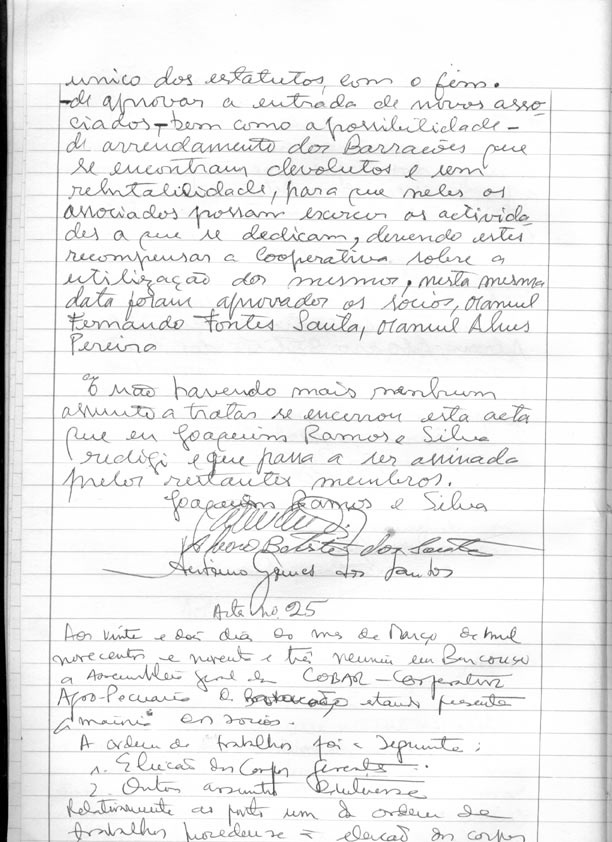 unico dos estatutos, com o fim.
de aprovar a entrada de novos asso-
ciados, bem como a possibilidade
de arrendamento dos Barracões que
se encontram devolutos e sem
rebntalilidade, para que neles os
associados possam exercer as activida
des a que se dedicam, devendo estes
recompensar a Cooperativa sobre a
utilização dos mesmos, nesta mesma
data foram aprovados os sócios, Manuel
Fernando Fontes Santa, Manuel Alves
Pereira
E não havendo mais nenhum
assunto a tratar se encerrou esta acta
que eu Joaquim Ramos e Silva
redigi e que passa a ser assinada
pelos restantes membros.
Joaquim Ramos e Silva
Alvaro Batista dos Santos
António Gomes dos Santos
Acta no. 25
Aos vinte e dois dias do mes de Março de mil
novecentos e noventa e três reuniu em Barcouço
a Assembleia Geral da COBAR - Cooperativa
Agro-Pecuária de estando presente
a maioria dos socios.
A ordem de trabalhos foi a seguinte:
1. Eleição dos Corpos gerentes.
2. Outros assuntos
Relativamente ao ponto um da ordem de
trabalhos procedeu-se à eleição dos corpos